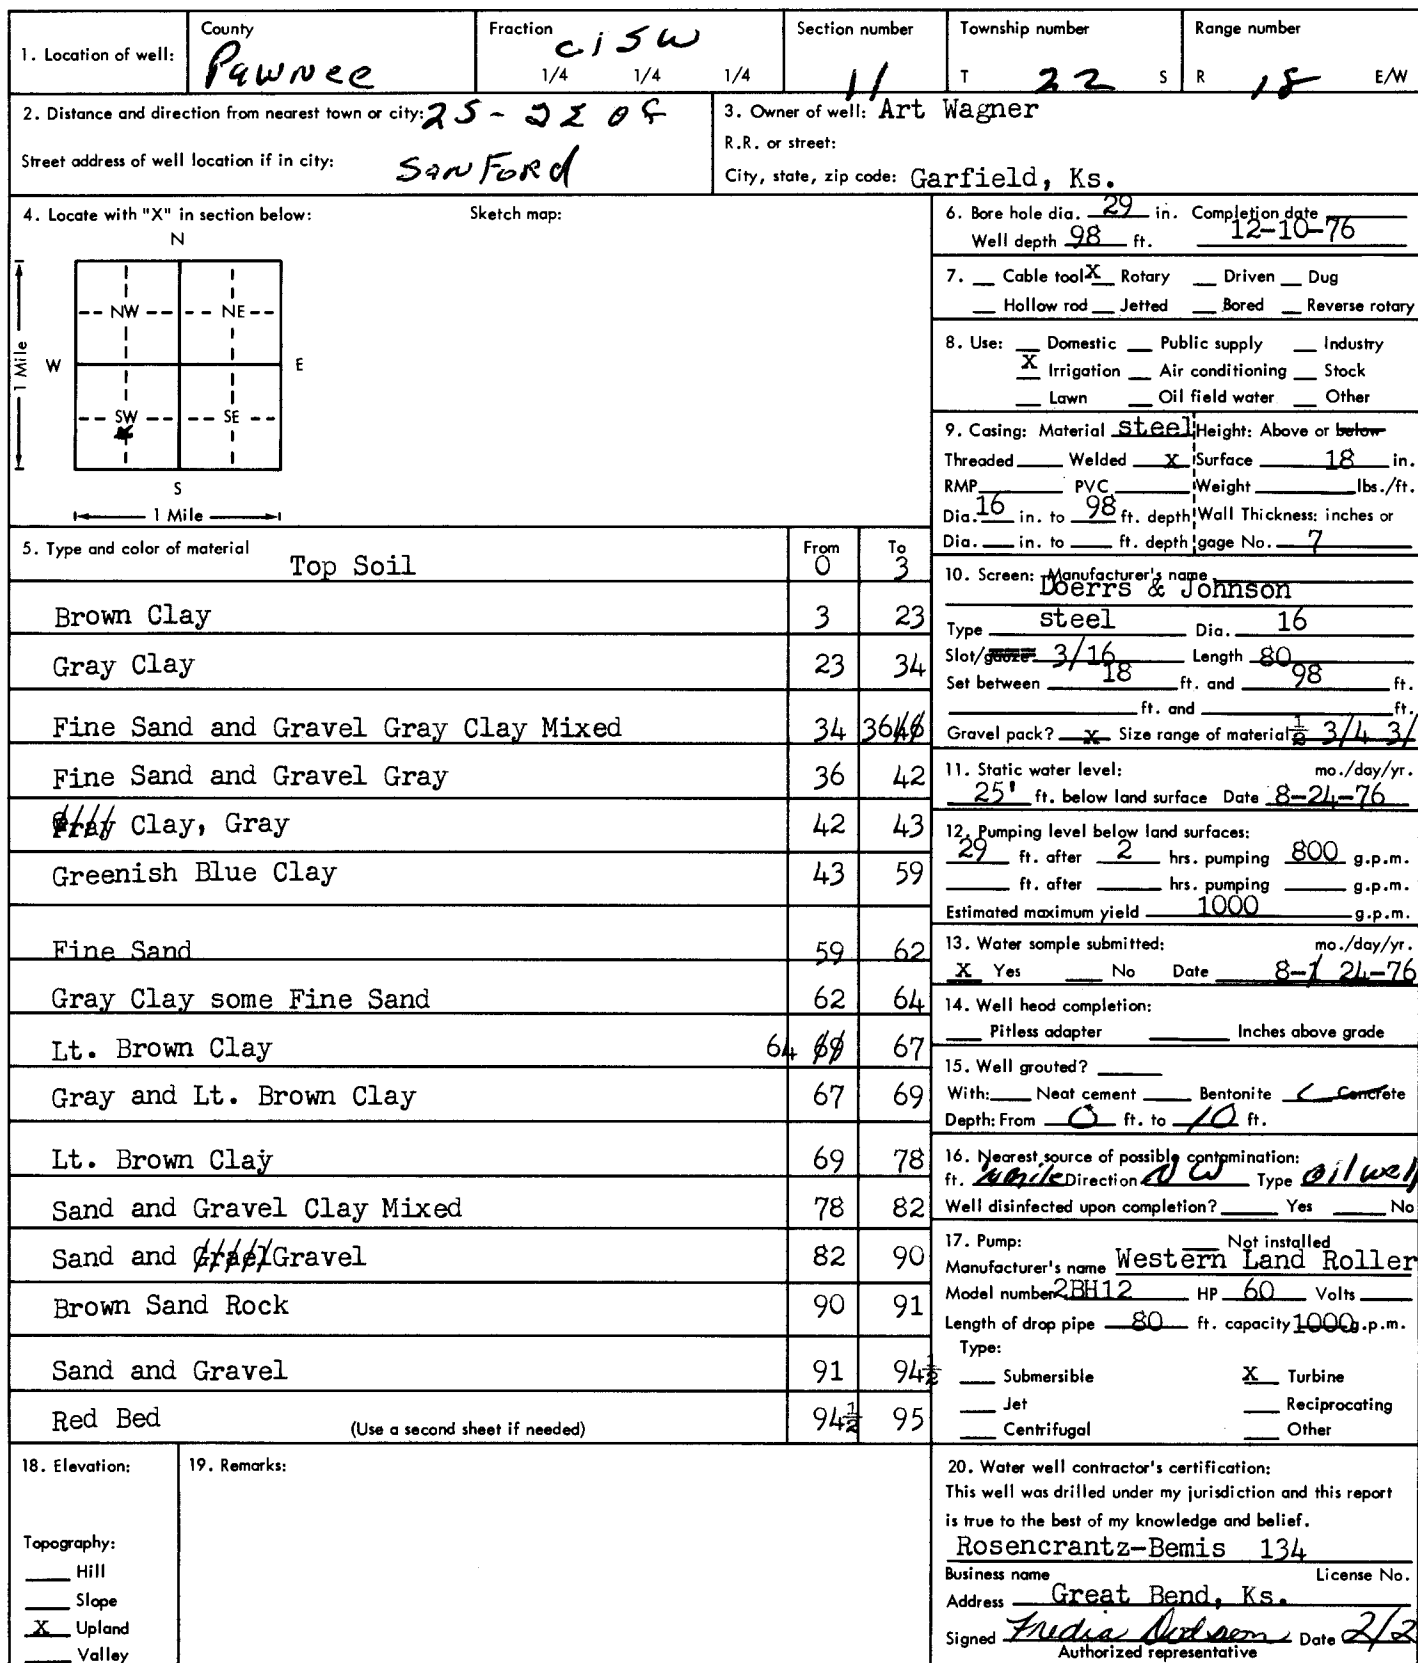 1. Location of well: County Pawnee Fraction 1/4 1/4 1/4 Section number 11 Township number T 22 S Range number R 18 E/W
2. Distance and direction from nearest town or city: 2S - 2E of
Street address of well location if in city: SanFord
3. Owner of well: Art Wagner
R.R. or street:
City, state, zip code: Garfield, Ks.
4. Locate with "X" in section below: Sketch map:
N
NW NE
W E
1 Mile
SW SE
X
S
1 Mile
5. Type and color of material From To
Top Soil 0 3
Brown Clay 3 23
Gray Clay 23 34
Fine Sand and Gravel Gray Clay Mixed 34 36
Fine Sand and Gravel Gray 36 42
Clay, Gray 42 43
Greenish Blue Clay 43 59
Fine Sand 59 62
Gray Clay some Fine Sand 62 64
Lt. Brown Clay 64 67
Gray and Lt. Brown Clay 67 69
Lt. Brown Clay 69 78
Sand and Gravel Clay Mixed 78 82
Sand and Gravel 82 90
Brown Sand Rock 90 91
Sand and Gravel 91 94½
Red Bed 94½ 95
(Use a second sheet if needed)
6. Bore hole dia. 29 in. Completion date
Well depth 98 ft. 12-10-76
7. __ Cable tool X Rotary __ Driven __ Dug
__ Hollow rod __ Jetted __ Bored __ Reverse rotary
8. Use: __ Domestic __ Public supply __ Industry
X Irrigation __ Air conditioning __ Stock
__ Lawn __ Oil field water __ Other
9. Casing: Material steel Height: Above or below
Threaded __ Welded X Surface 18 in.
RMP __ PVC __ Weight __ lbs./ft.
Dia. 16 in. to 98 ft. depth Wall Thickness: inches or
Dia. __ in. to __ ft. depth gage No. 7
10. Screen: Manufacturer's name
Doerrs & Johnson
Type steel Dia. 16
Slot/gauze 3/16 Length 80
Set between 18 ft. and 98 ft.
__ ft. and __ ft.
Gravel pack? X Size range of material ½ 3/4 3/
11. Static water level: mo./day/yr.
25' ft. below land surface Date 8-24-76
12. Pumping level below land surfaces:
29 ft. after 2 hrs. pumping 800 g.p.m.
__ ft. after __ hrs. pumping __ g.p.m.
Estimated maximum yield 1000 g.p.m.
13. Water somple submitted: mo./day/yr.
X Yes __ No Date 8-24-76
14. Well head completion:
__ Pitless adapter __ Inches above grade
15. Well grouted? __
With: __ Neat cement __ Bentonite __ Concrete
Depth: From 0 ft. to 10 ft.
16. Nearest source of possible contamination:
ft. mile Direction NW Type oil well
Well disinfected upon completion? __ Yes __ No
17. Pump: __ Not installed
Manufacturer's name Western Land Roller
Model number 2BH12 HP 60 Volts __
Length of drop pipe 80 ft. capacity 1000 g.p.m.
Type:
__ Submersible X Turbine
__ Jet __ Reciprocating
__ Centrifugal __ Other
18. Elevation:
Topography:
__ Hill
__ Slope
X Upland
__ Valley
19. Remarks:
20. Water well contractor's certification:
This well was drilled under my jurisdiction and this report
is true to the best of my knowledge and belief.
Rosencrantz-Bemis 134
Business name License No.
Address Great Bend, Ks.
Signed Fredia Dodson Date 2/2
Authorized representative